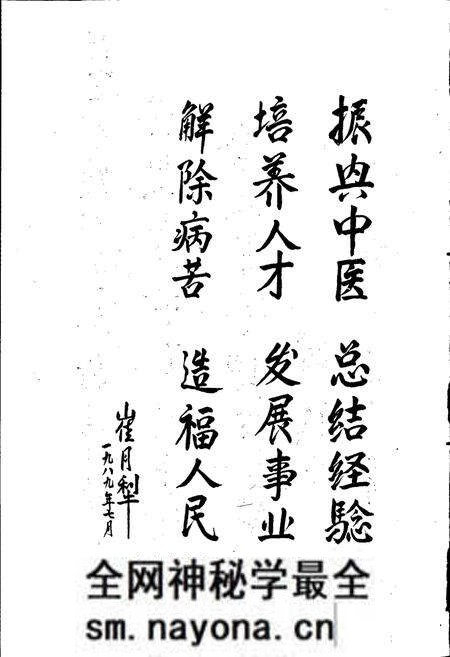 振兴中医 总结经验
培养人才 发展事业
解除病苦 造福人民
崔月犁
一九八九年七月
全网神秘学最全
sm.nayona.cn